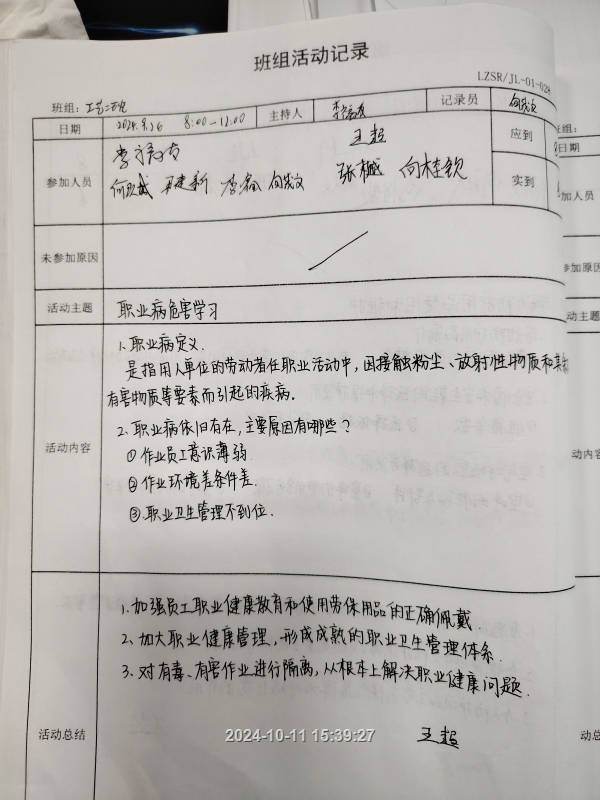 班组活动记录
LZSR/JL-01-028
班组：工艺二班
日期 2024.9.26 8:00—12:00 主持人 记录员 向贤文
参加人员 王超 应到
张樾 向桂钦 实到
未参加原因
活动主题 职业病危害学习
活动内容
1.职业病定义.
是指用人单位的劳动者任职业活动中，因接触粉尘、放射性物质和其他
有害物质等要素而引起的疾病.
2.职业病依旧存在，主要原因有哪些？
①作业员工意识薄弱
②作业环境差条件差.
③.职业卫生管理不到位.
活动总结
1.加强员工职业健康教育和使用劳保用品的正确佩戴.
2、加大职业健康管理，形成成熟的职业卫生管理体系.
3.对有毒、有害作业进行隔离，从根本上解决职业健康问题.
王超
2024-10-11 15:39:27